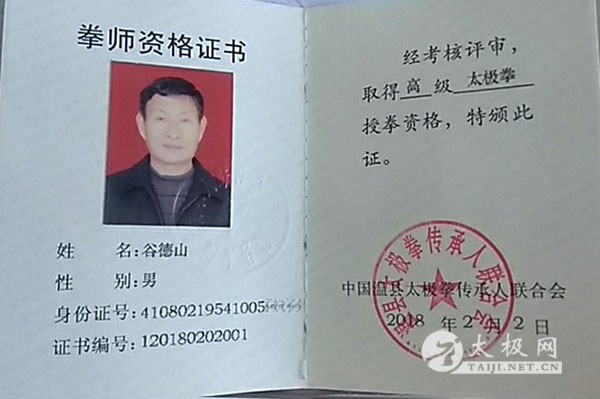 拳师资格证书
姓 名:谷德山
性 别:男
身份证号:41080219541005
证书编号:120180202001
经考核评审,
取得高级太极拳
授拳资格,特颁此
证。
温县太极拳传承人联合会
中国温县太极拳传承人联合会
2018年2月2日
太极网
TAIJI.NET.CN